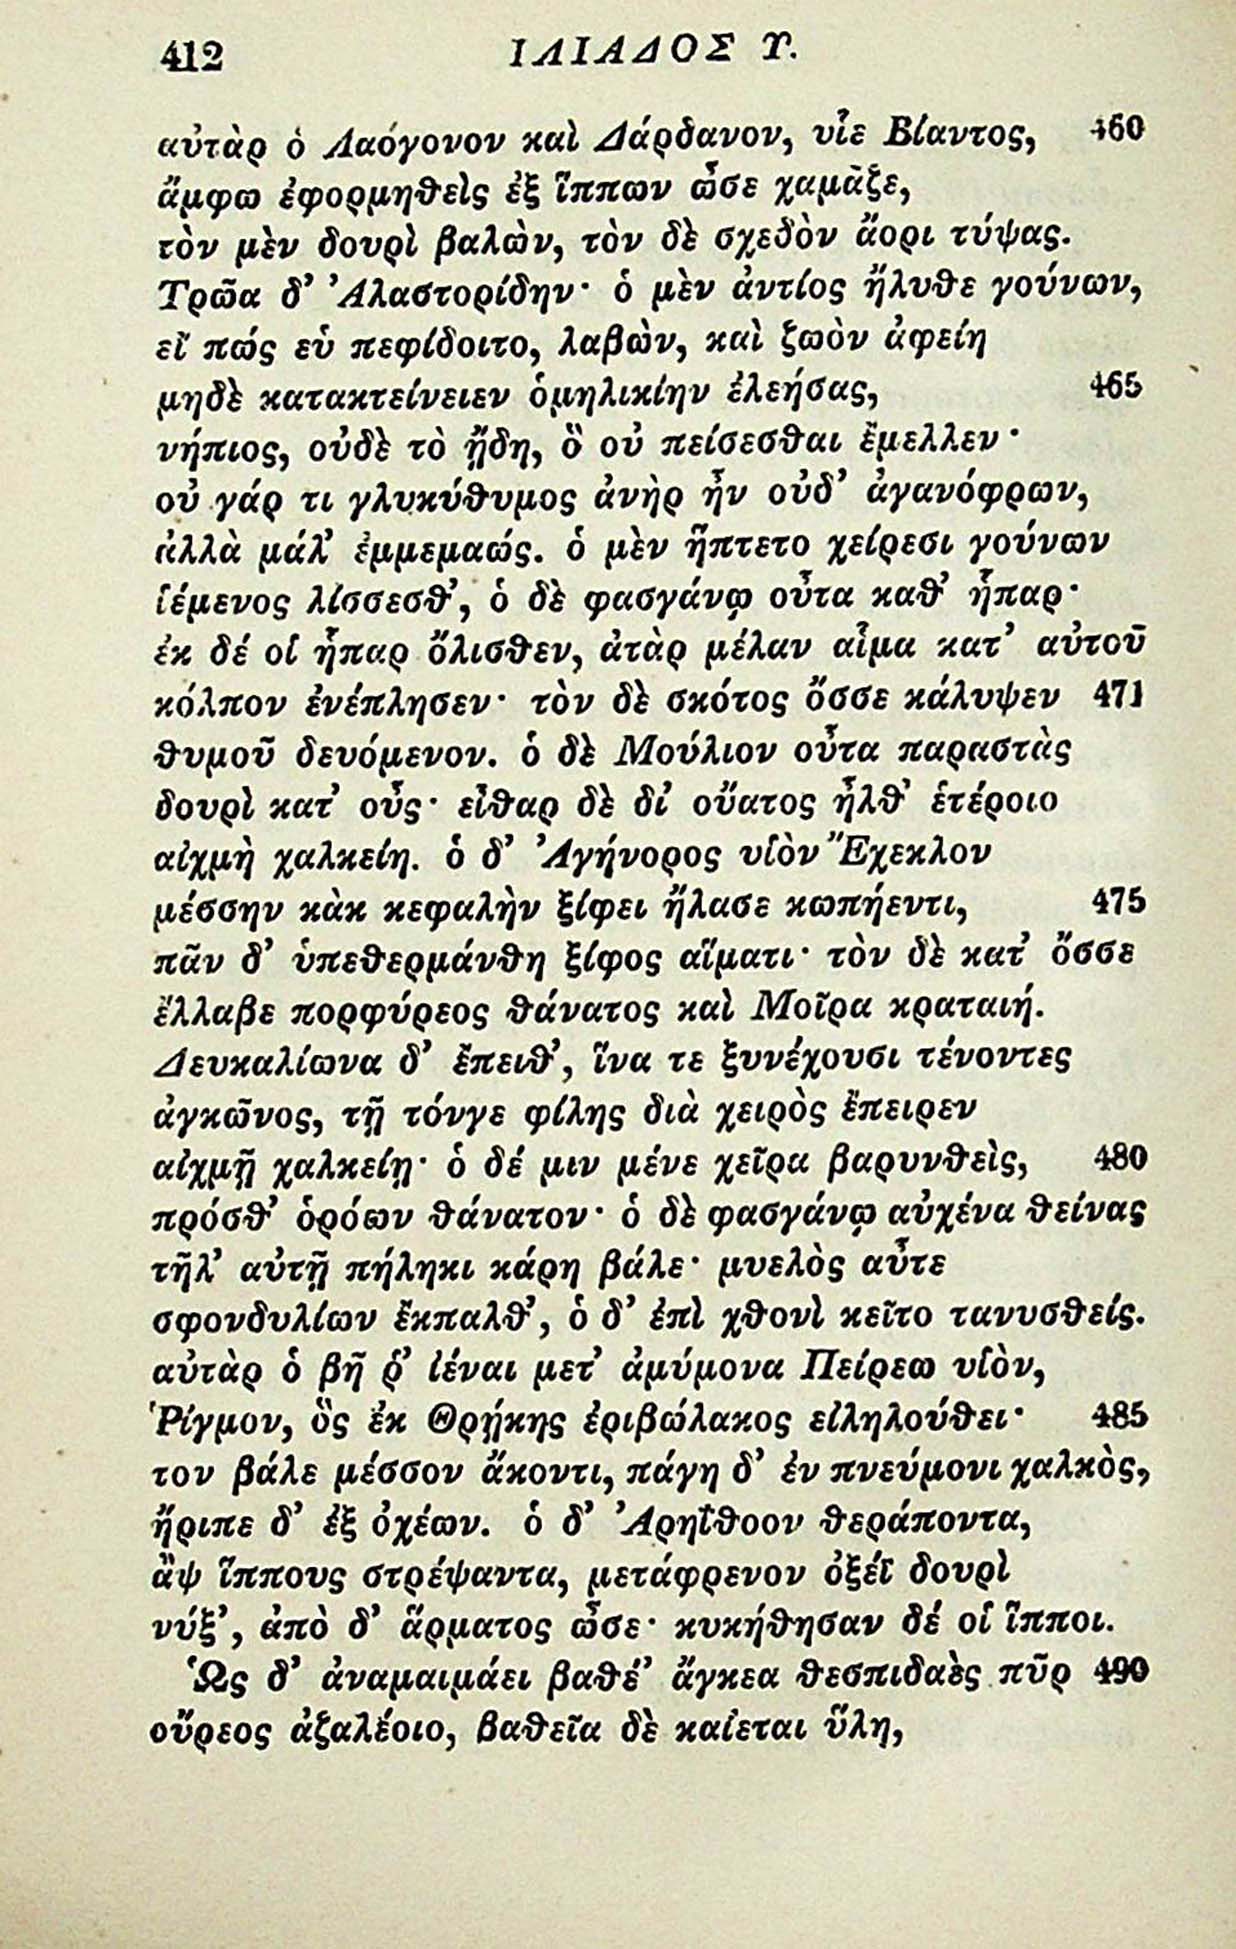 412 ΙΛΙΑΔΟΣ Υ.
αὐτὰρ ὁ Λαόγονον καὶ Δάρδανον, υἷε Βίαντος, 460
ἄμφω ἐφορμηθεὶς ἐξ ἵππων ὦσε χαμᾶζε,
τὸν μὲν δουρὶ βαλὼν, τὸν δὲ σχεδὸν ἄορι τύψας.
Τρῶα δ’ Ἀλαστορίδην· ὁ μὲν ἀντίος ἤλυθε γούνων,
εἴ πώς εὑ πεφίδοιτο, λαβὼν, καὶ ζωὸν ἀφείη
μηδὲ κατακτείνειεν ὁμηλικίην ἐλεήσας, 465
νήπιος, οὐδὲ τὸ ᾔδη, ὃ οὐ πείσεσθαι ἔμελλεν·
οὐ γάρ τι γλυκύθυμος ἀνὴρ ἦν οὐδ’ ἀγανόφρων,
ἀλλὰ μάλ’ ἐμμεμαώς. ὁ μὲν ἥπτετο χείρεσι γούνων
ἱέμενος λίσσεσθ’, ὁ δὲ φασγάνῳ οὖτα καθ’ ἧπαρ·
ἐκ δέ οἱ ἧπαρ ὄλισθεν, ἀτὰρ μέλαν αἷμα κατ’ αὐτοῦ
κόλπον ἐνέπλησεν· τὸν δὲ σκότος ὄσσε κάλυψεν 471
θυμοῦ δευόμενον. ὁ δὲ Μούλιον οὖτα παραστὰς
δουρὶ κατ’ οὖς· εἶθαρ δὲ δι’ οὔατος ἦλθ’ ἑτέροιο
αἰχμὴ χαλκείη. ὁ δ’ Ἀγήνορος υἱὸν Ἔχεκλον
μέσσην κὰκ κεφαλὴν ξίφει ἤλασε κωπήεντι, 475
πᾶν δ’ ὑπεθερμάνθη ξίφος αἵματι· τὸν δὲ κατ’ ὄσσε
ἔλλαβε πορφύρεος θάνατος καὶ Μοῖρα κραταιή.
Δευκαλίωνα δ’ ἔπειθ’, ἵνα τε ξυνέχουσι τένοντες
ἀγκῶνος, τῇ τόνγε φίλης διὰ χειρὸς ἔπειρεν
αἰχμῇ χαλκείῃ· ὁ δέ μιν μένε χεῖρα βαρυνθεὶς, 480
πρόσθ’ ὁρόων θάνατον· ὁ δὲ φασγάνῳ αὐχένα θείνας
τῆλ’ αὐτῇ πήληκι κάρη βάλε· μυελὸς αὖτε
σφονδυλίων ἔκπαλθ’, ὁ δ’ ἐπὶ χθονὶ κεῖτο τανυσθείς.
αὐτὰρ ὁ βῆ ῥ’ ἰέναι μετ’ ἀμύμονα Πείρεω υἱὸν,
Ῥίγμον, ὃς ἐκ Θρῄκης ἐριβώλακος εἰληλούθει· 485
τον βάλε μέσσον ἄκοντι, πάγη δ’ ἐν πνεύμονι χαλκὸς,
ἤριπε δ’ ἐξ ὀχέων. ὁ δ’ Ἀρηΐθοον θεράποντα,
ἂψ ἵππους στρέψαντα, μετάφρενον ὀξέϊ δουρὶ
νύξ’, ἀπὸ δ’ ἅρματος ὦσε· κυκήθησαν δέ οἱ ἵπποι.
Ὡς δ’ ἀναμαιμάει βαθέ’ ἄγκεα θεσπιδαὲς πῦρ 490
οὔρεος ἀζαλέοιο, βαθεῖα δὲ καίεται ὕλη,